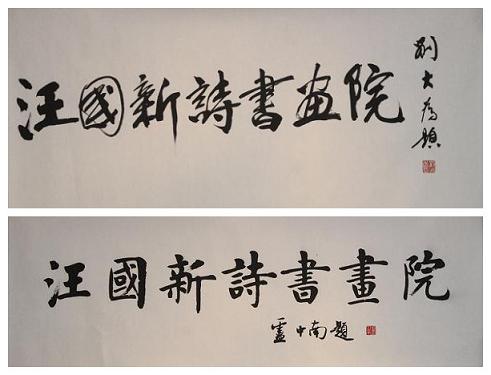 汪國新詩書画院
劉大為題
汪國新詩書畫院
盧中南題